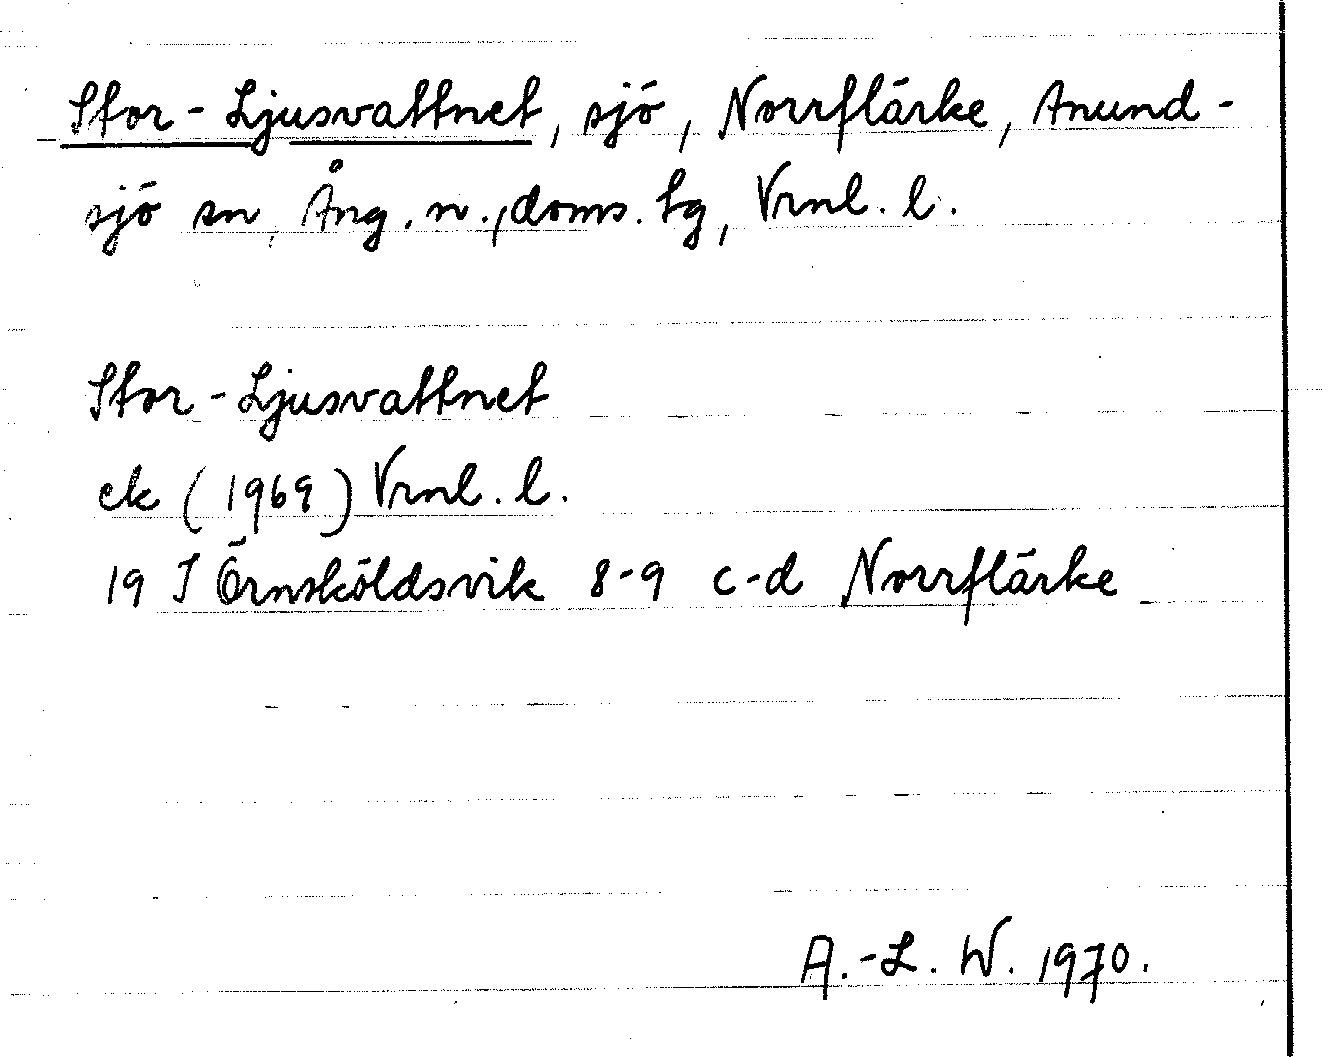 Stor-Ljusvattnet, sjö, Norrflärke, Anund-
sjö sn, Ång. n., doms. tg, Vrnl. l.
Stor-Ljusvattnet
ek (1969) Vrnl. l.
19 J Örnsköldsvik 8-9 c-d Norrflärke
A.-L. W. 1970.